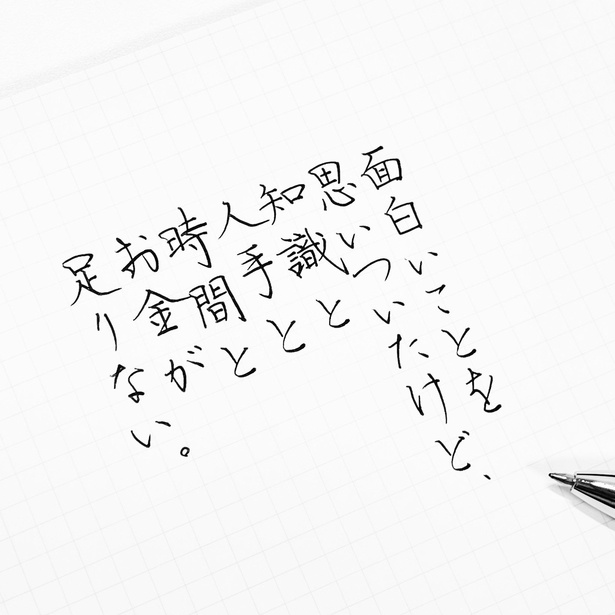 面白いことを
思いついたけど、
知識と
人手と
時間と
お金が
足りない。